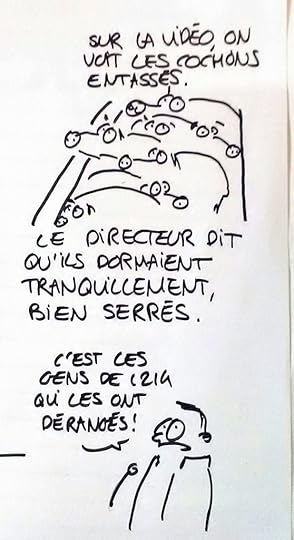 SUR LA VIDÉO, ON
VOIT LES COCHONS
ENTASSÉS.
LE DIRECTEUR DIT
QU'ILS DORMAIENT
TRANQUILLEMENT,
BIEN SERRÉS.
C'EST LES
GENS DE L214
QUI LES ONT
DÉRANGÉS!